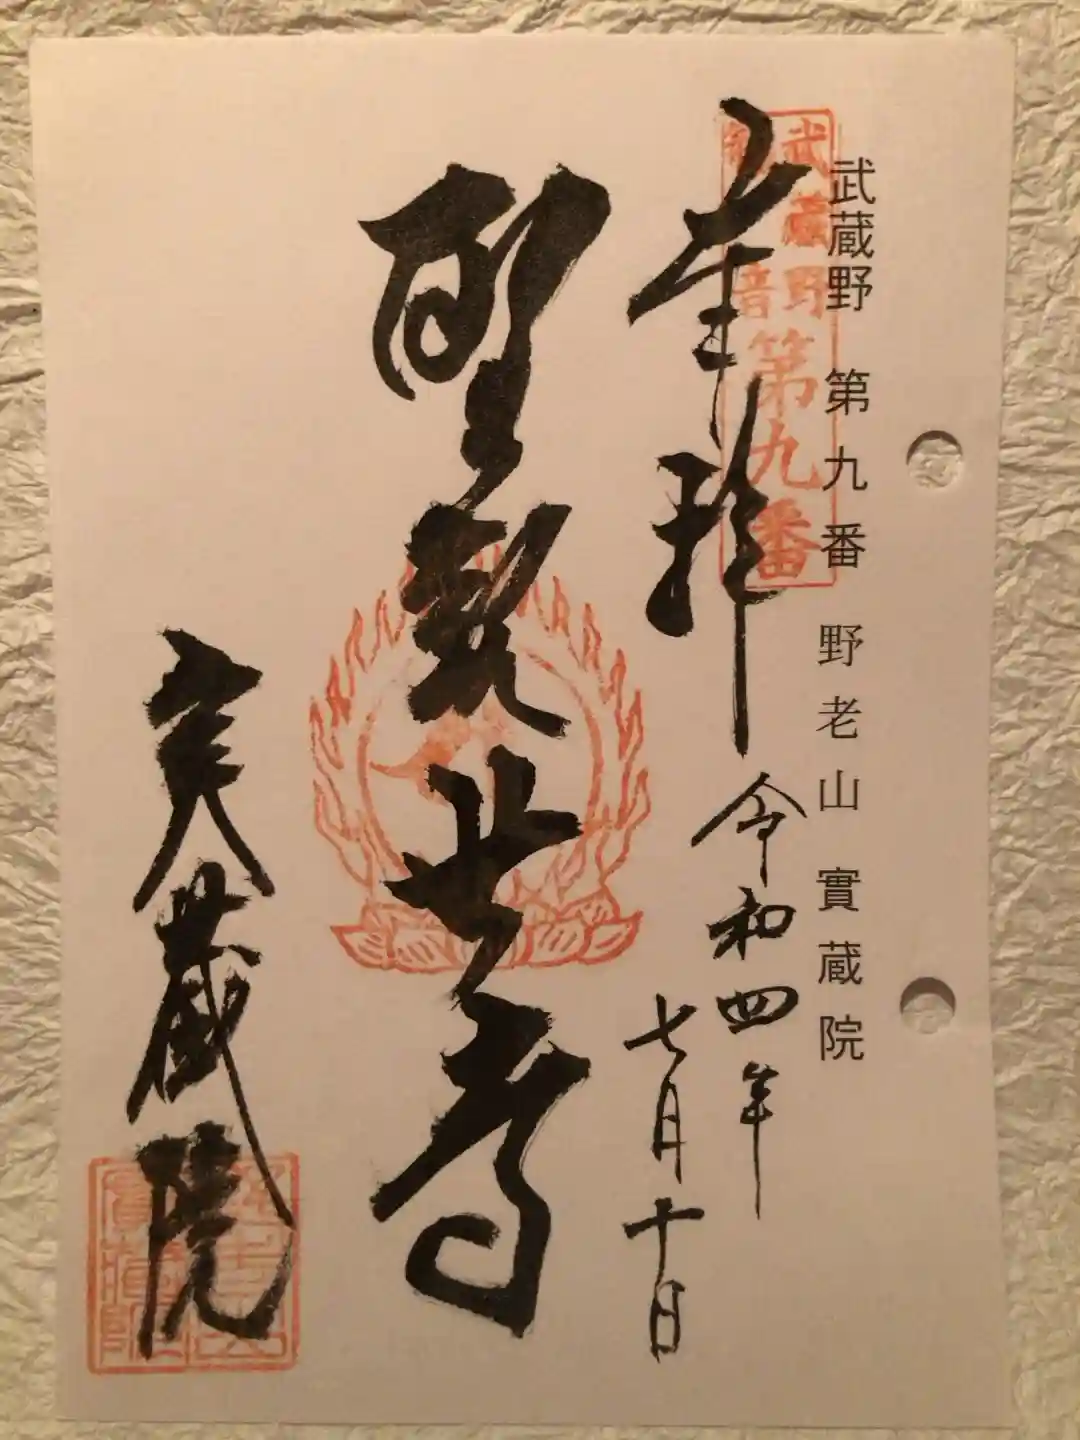 武蔵野 第九番 野老山 實蔵院
武蔵野
観音
第九番
奉拝
令和四年
七月十日
聖観世音
実蔵院